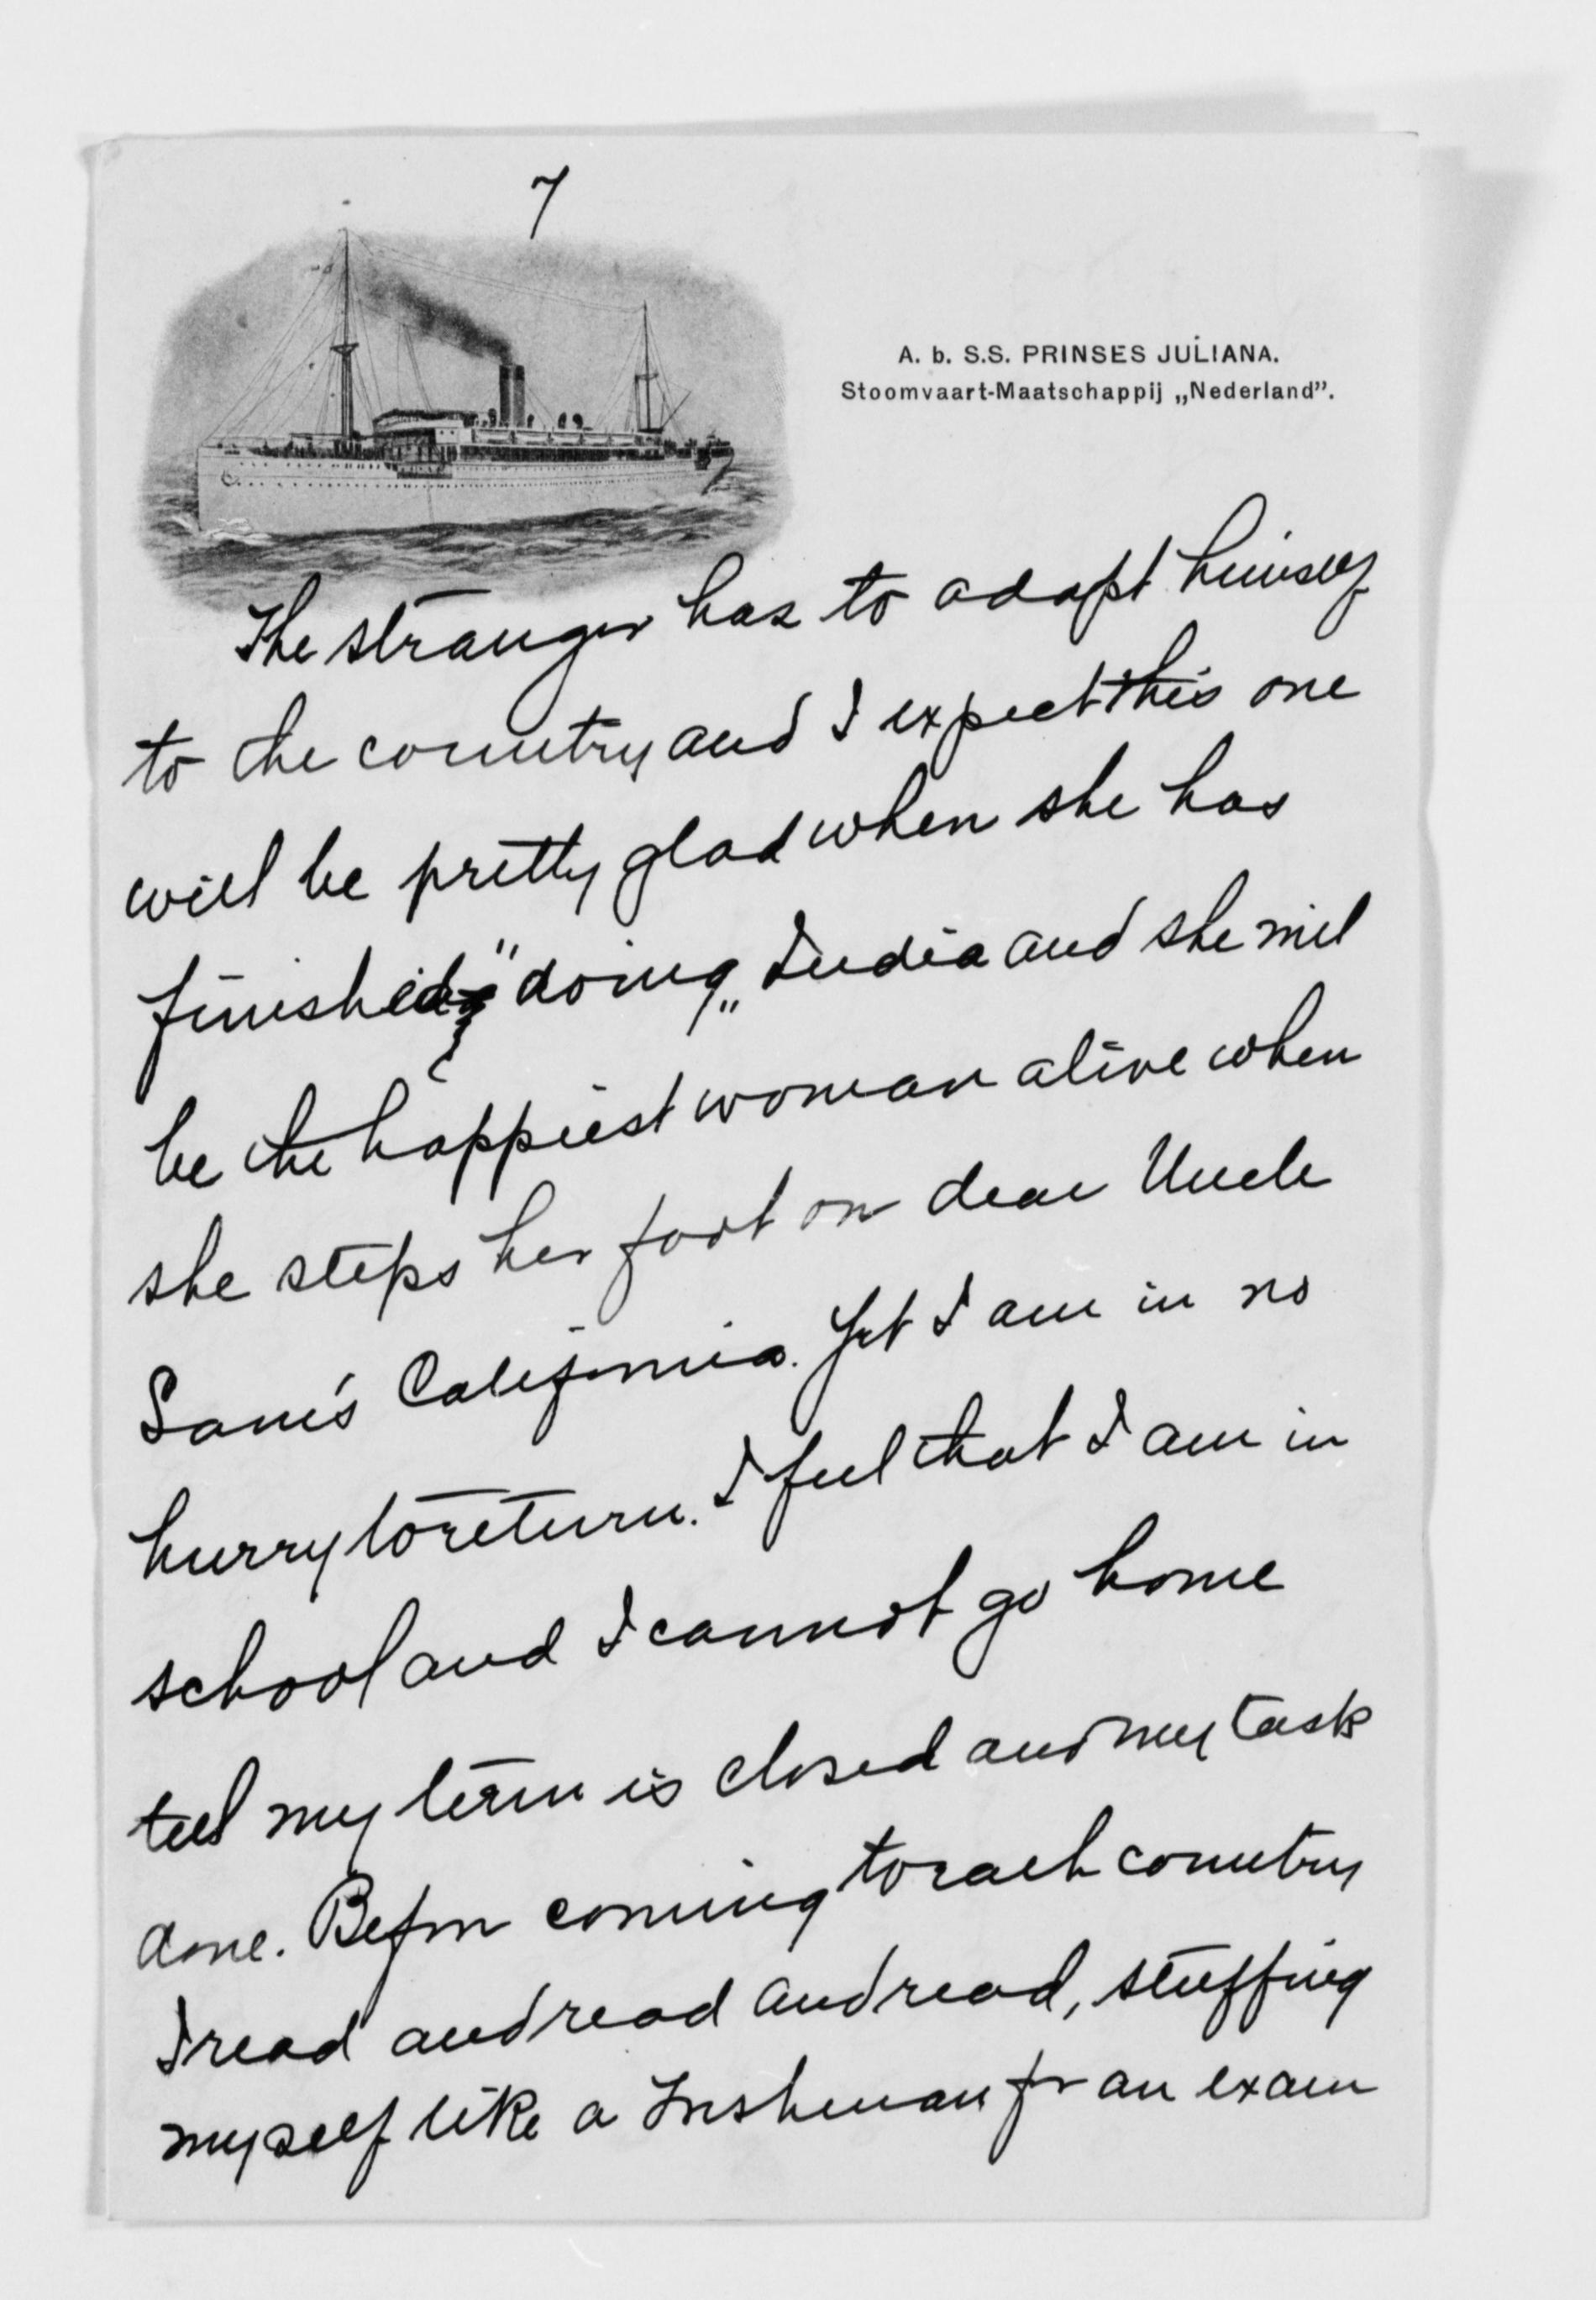 7
A. b. S.S. PRINSES JULIANA.
Stoomvaart-Maatschappij „Nederland”.
The stranger has to adapt himself
to the country and I expect this one
will be pretty glad when she has
finished "doing„ India and she will
be the happiest woman alive when
she steps her foot on dear Uncle
Sam's California. Yet I am in no
hurry to return. I feel that I am in
school and I cannot go home
till my term is closed and my task
done. Before coming to each country
I read and read and read, stuffing
myself like a Freshman for an exam